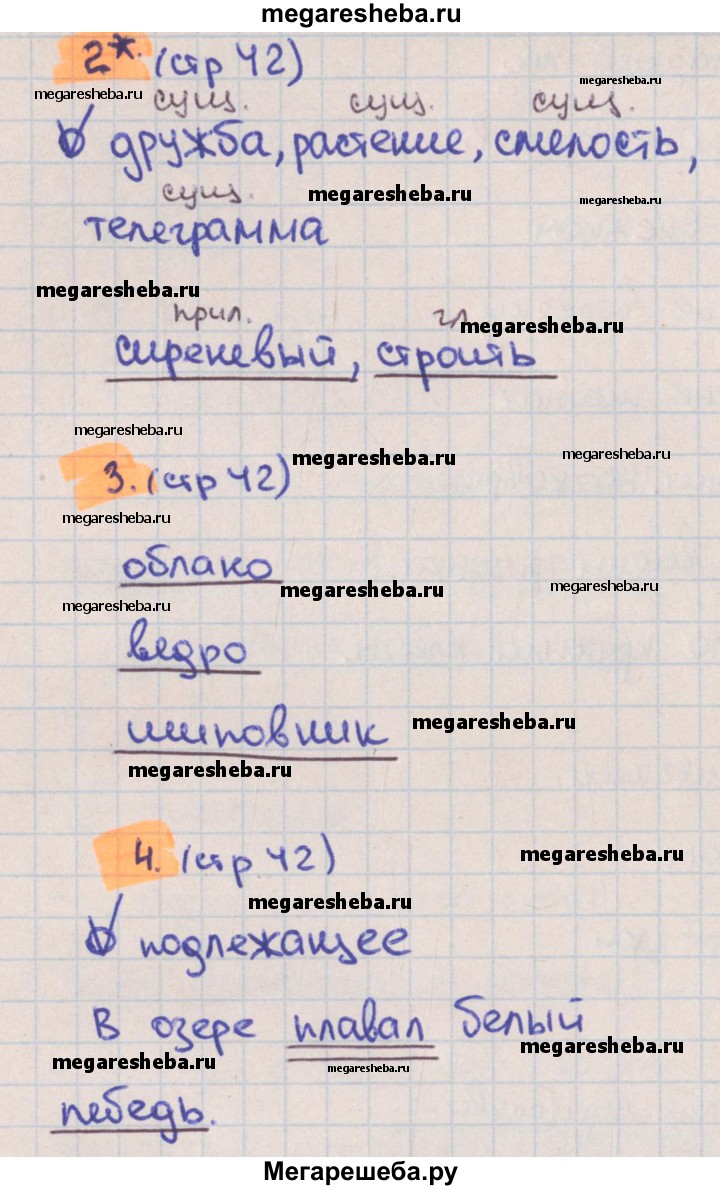 megaresheba.ru
2*. (стр 42)
megaresheba.ru
megaresheba.ru
сущ. сущ. сущ.
дружба, растение, смелость,
megaresheba.ru
megaresheba.ru
сущ.
телеграмма
megaresheba.ru
прил. гл
megaresheba.ru
сиреневый, строить
megaresheba.ru
megaresheba.ru
megaresheba.ru
3. (стр 42)
megaresheba.ru
облако
megaresheba.ru
megaresheba.ru
megaresheba.ru
ведро
шиповник
megaresheba.ru
megaresheba.ru
4. (стр 42)
megaresheba.ru
megaresheba.ru
подлежащее
В озере плавал белый
megaresheba.ru
megaresheba.ru
megaresheba.ru
лебедь.
Мегарешеба.ру